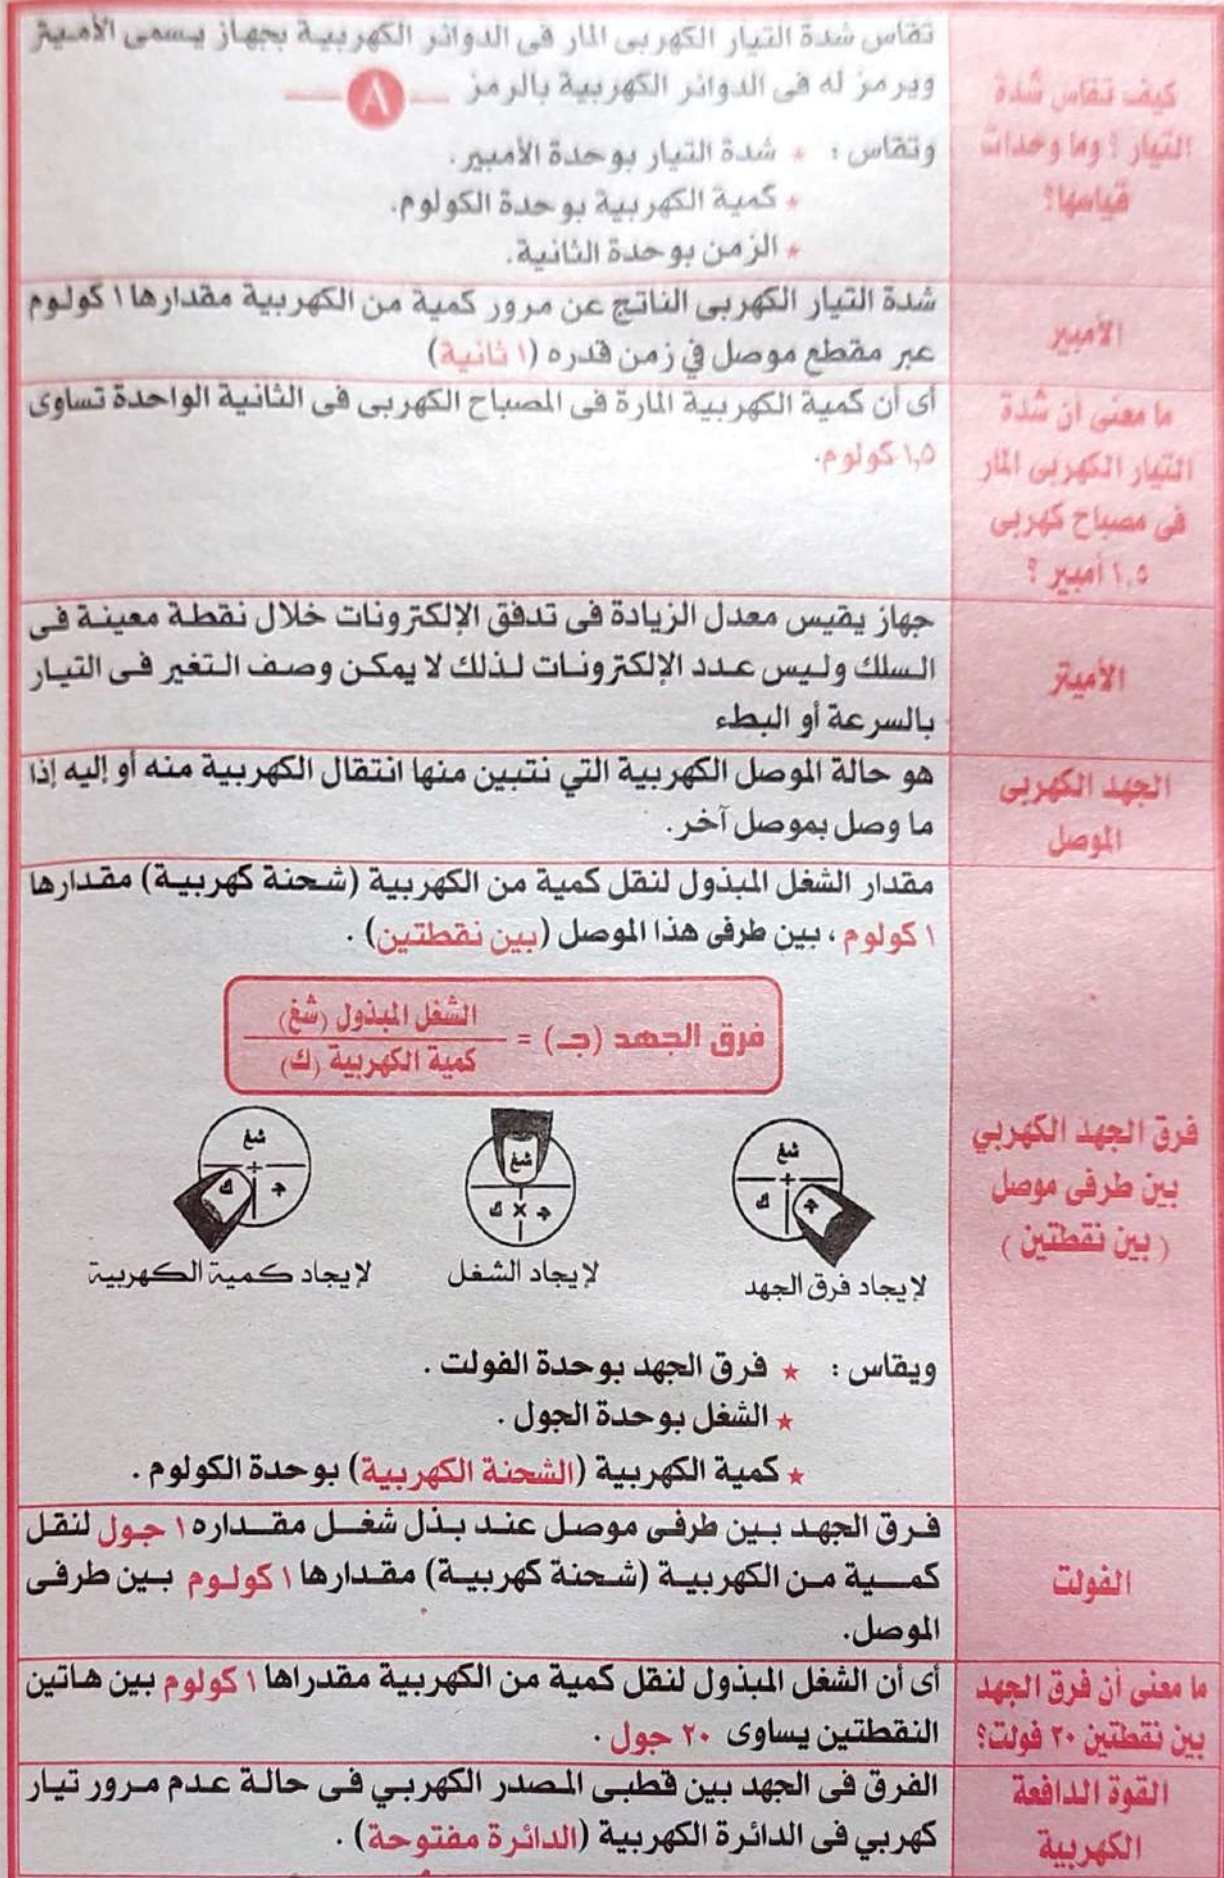 كيف تقاس شدة
التيار ؟ وما وحدات
قياسها؟
تقاس شدة التيار الكهربى المار فى الدوائر الكهربية بجهاز يسمى الأميتر
ويرمز له فى الدوائر الكهربية بالرمز A
وتقاس : ★ شدة التيار بوحدة الأمبير.
★ كمية الكهربية بوحدة الكولوم.
★ الزمن بوحدة الثانية.
الأمبير
شدة التيار الكهربى الناتج عن مرور كمية من الكهربية مقدارها ١ كولوم
عبر مقطع موصل في زمن قدره (١ ثانية)
ما معنى أن شدة
التيار الكهربى المار
فى مصباح كهربى
١,٥ أمبير ؟
أى أن كمية الكهربية المارة فى المصباح الكهربى فى الثانية الواحدة تساوى
١,٥ كولوم.
الأميتر
جهاز يقيس معدل الزيادة فى تدفق الإلكترونات خلال نقطة معينة فى
السلك وليس عدد الإلكترونات لذلك لا يمكن وصف التغير فى التيار
بالسرعة أو البطء
الجهد الكهربى
الموصل
هو حالة الموصل الكهربية التي نتبين منها انتقال الكهربية منه أو إليه إذا
ما وصل بموصل آخر.
فرق الجهد الكهربي
بين طرفى موصل
( بين نقطتين )
مقدار الشغل المبذول لنقل كمية من الكهربية (شحنة كهربية) مقدارها
١ كولوم ، بين طرفى هذا الموصل (بين نقطتين) .
فرق الجهد (جـ) = الشغل المبذول (شغ)
كمية الكهربية (ك)
شغ
÷
جـ ك
لإيجاد فرق الجهد
شغ
جـ × ك
لإيجاد الشغل
شغ
÷
جـ ك
لإيجاد كمية الكهربية
ويقاس : ★ فرق الجهد بوحدة الفولت .
★ الشغل بوحدة الجول .
★ كمية الكهربية (الشحنة الكهربية) بوحدة الكولوم .
الفولت
فرق الجهد بين طرفى موصل عند بذل شغل مقداره ١ جول لنقل
كمية من الكهربية (شحنة كهربية) مقدارها ١ كولوم بين طرفى
الموصل.
ما معنى أن فرق الجهد
بين نقطتين ٢٠ فولت؟
أى أن الشغل المبذول لنقل كمية من الكهربية مقدراها ١ كولوم بين هاتين
النقطتين يساوى ٢٠ جول .
القوة الدافعة
الكهربية
الفرق فى الجهد بين قطبى المصدر الكهربي فى حالة عدم مرور تيار
كهربي فى الدائرة الكهربية (الدائرة مفتوحة) .